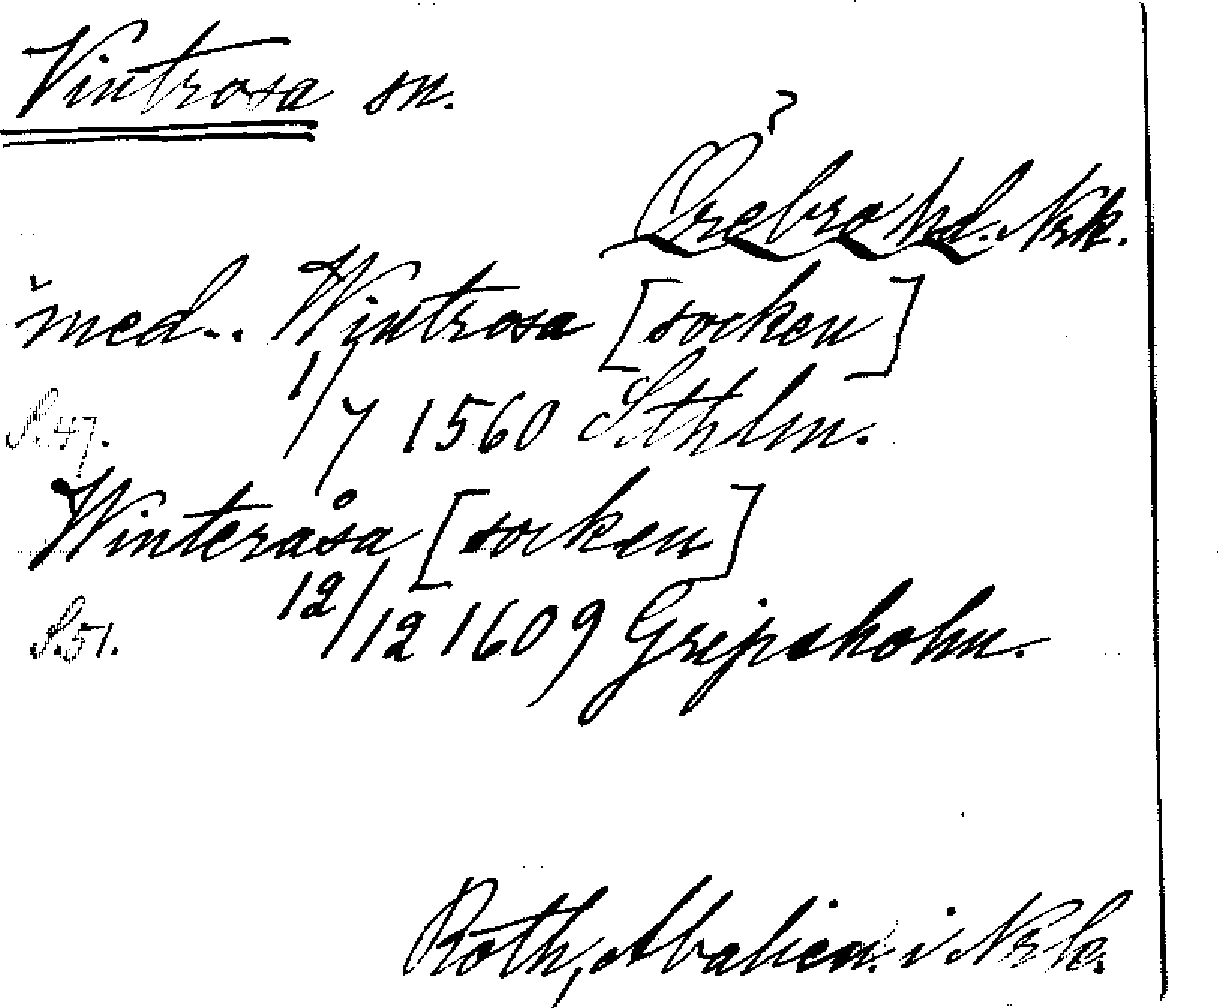 Vintrosa sn.
?
Örebro hd. Nrk.
med.. Wintrosa [socken]
S.47. 1/7 1560 Sthlm.
Winteråsa [socken]
S.51. 12/12 1609 Gripsholm.
Roth, i Nrk.